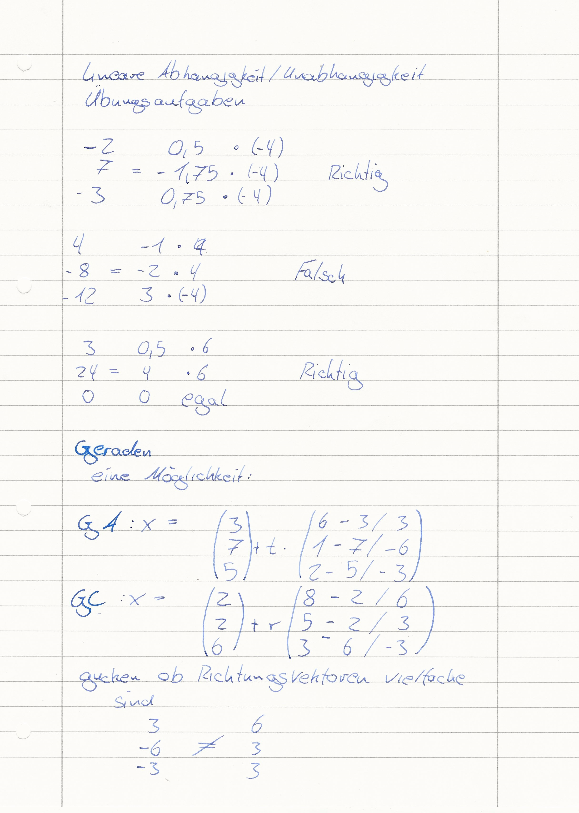 Lineare Abhängigkeit/Unabhängigkeit
Übungsaufgaben
-2 0,5 · (-4)
7 = -1,75 · (-4) Richtig
-3 0,75 · (-4)
4 -1 · 4
-8 = -2 · 4 Falsch
-12 3 · (-4)
3 0,5 · 6
24 = 4 · 6 Richtig
0 0 egal
Geraden
eine Möglichkeit:
GA : x = (3 7 5) + t · (6 - 3 / 3 1 - 7 / -6 2 - 5 / -3)
GC : x = (2 2 6) + r (8 - 2 / 6 5 - 2 / 3 3 - 6 / -3)
gucken ob Richtungsvektoren vielfache
sind
3 6
-6 ≠ 3
-3 3